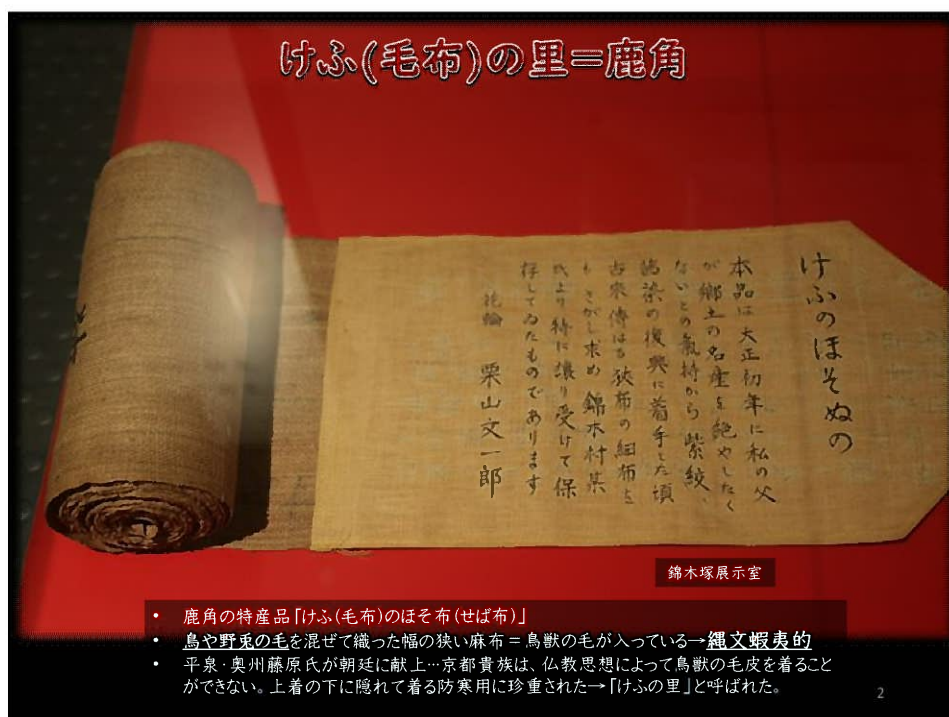 けふ(毛布)の里=鹿角
けふのほそぬの
本品は大正初年に私の父
が郷土の名産を絶やしたく
ないとの氣持から紫絞、
茜染の復興に着手した頃
古来傳はる狭布の細布を
もさがし求め錦木村某
氏より特に譲り受けて保
存してゐたものであります
花輪 栗山文一郎
錦木塚展示室
• 鹿角の特産品「けふ(毛布)のほそ布(せば布)」
• 鳥や野兎の毛を混ぜて織った幅の狭い麻布=鳥獣の毛が入っている→縄文蝦夷的
• 平泉・奥州藤原氏が朝廷に献上…京都貴族は、仏教思想によって鳥獣の毛皮を着ること
ができない。上着の下に隠れて着る防寒用に珍重された→「けふの里」と呼ばれた。
2